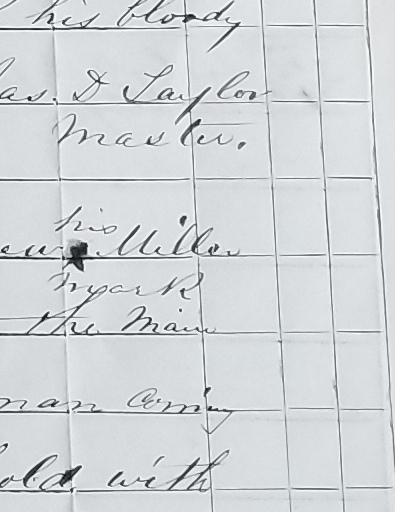 his bloody
as. D Taylor
Master.
his
Miller
mark
the Main
man Coming
old with